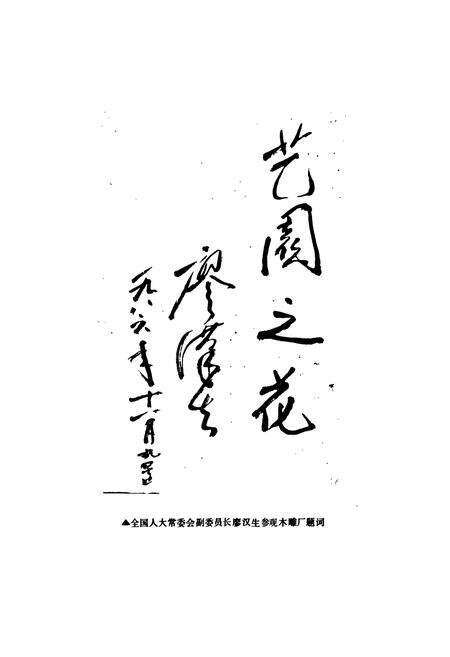 艺园之花
廖汉生
一九八六年十一月九日
▲全国人大常委会副委员长廖汉生参观木雕厂题词